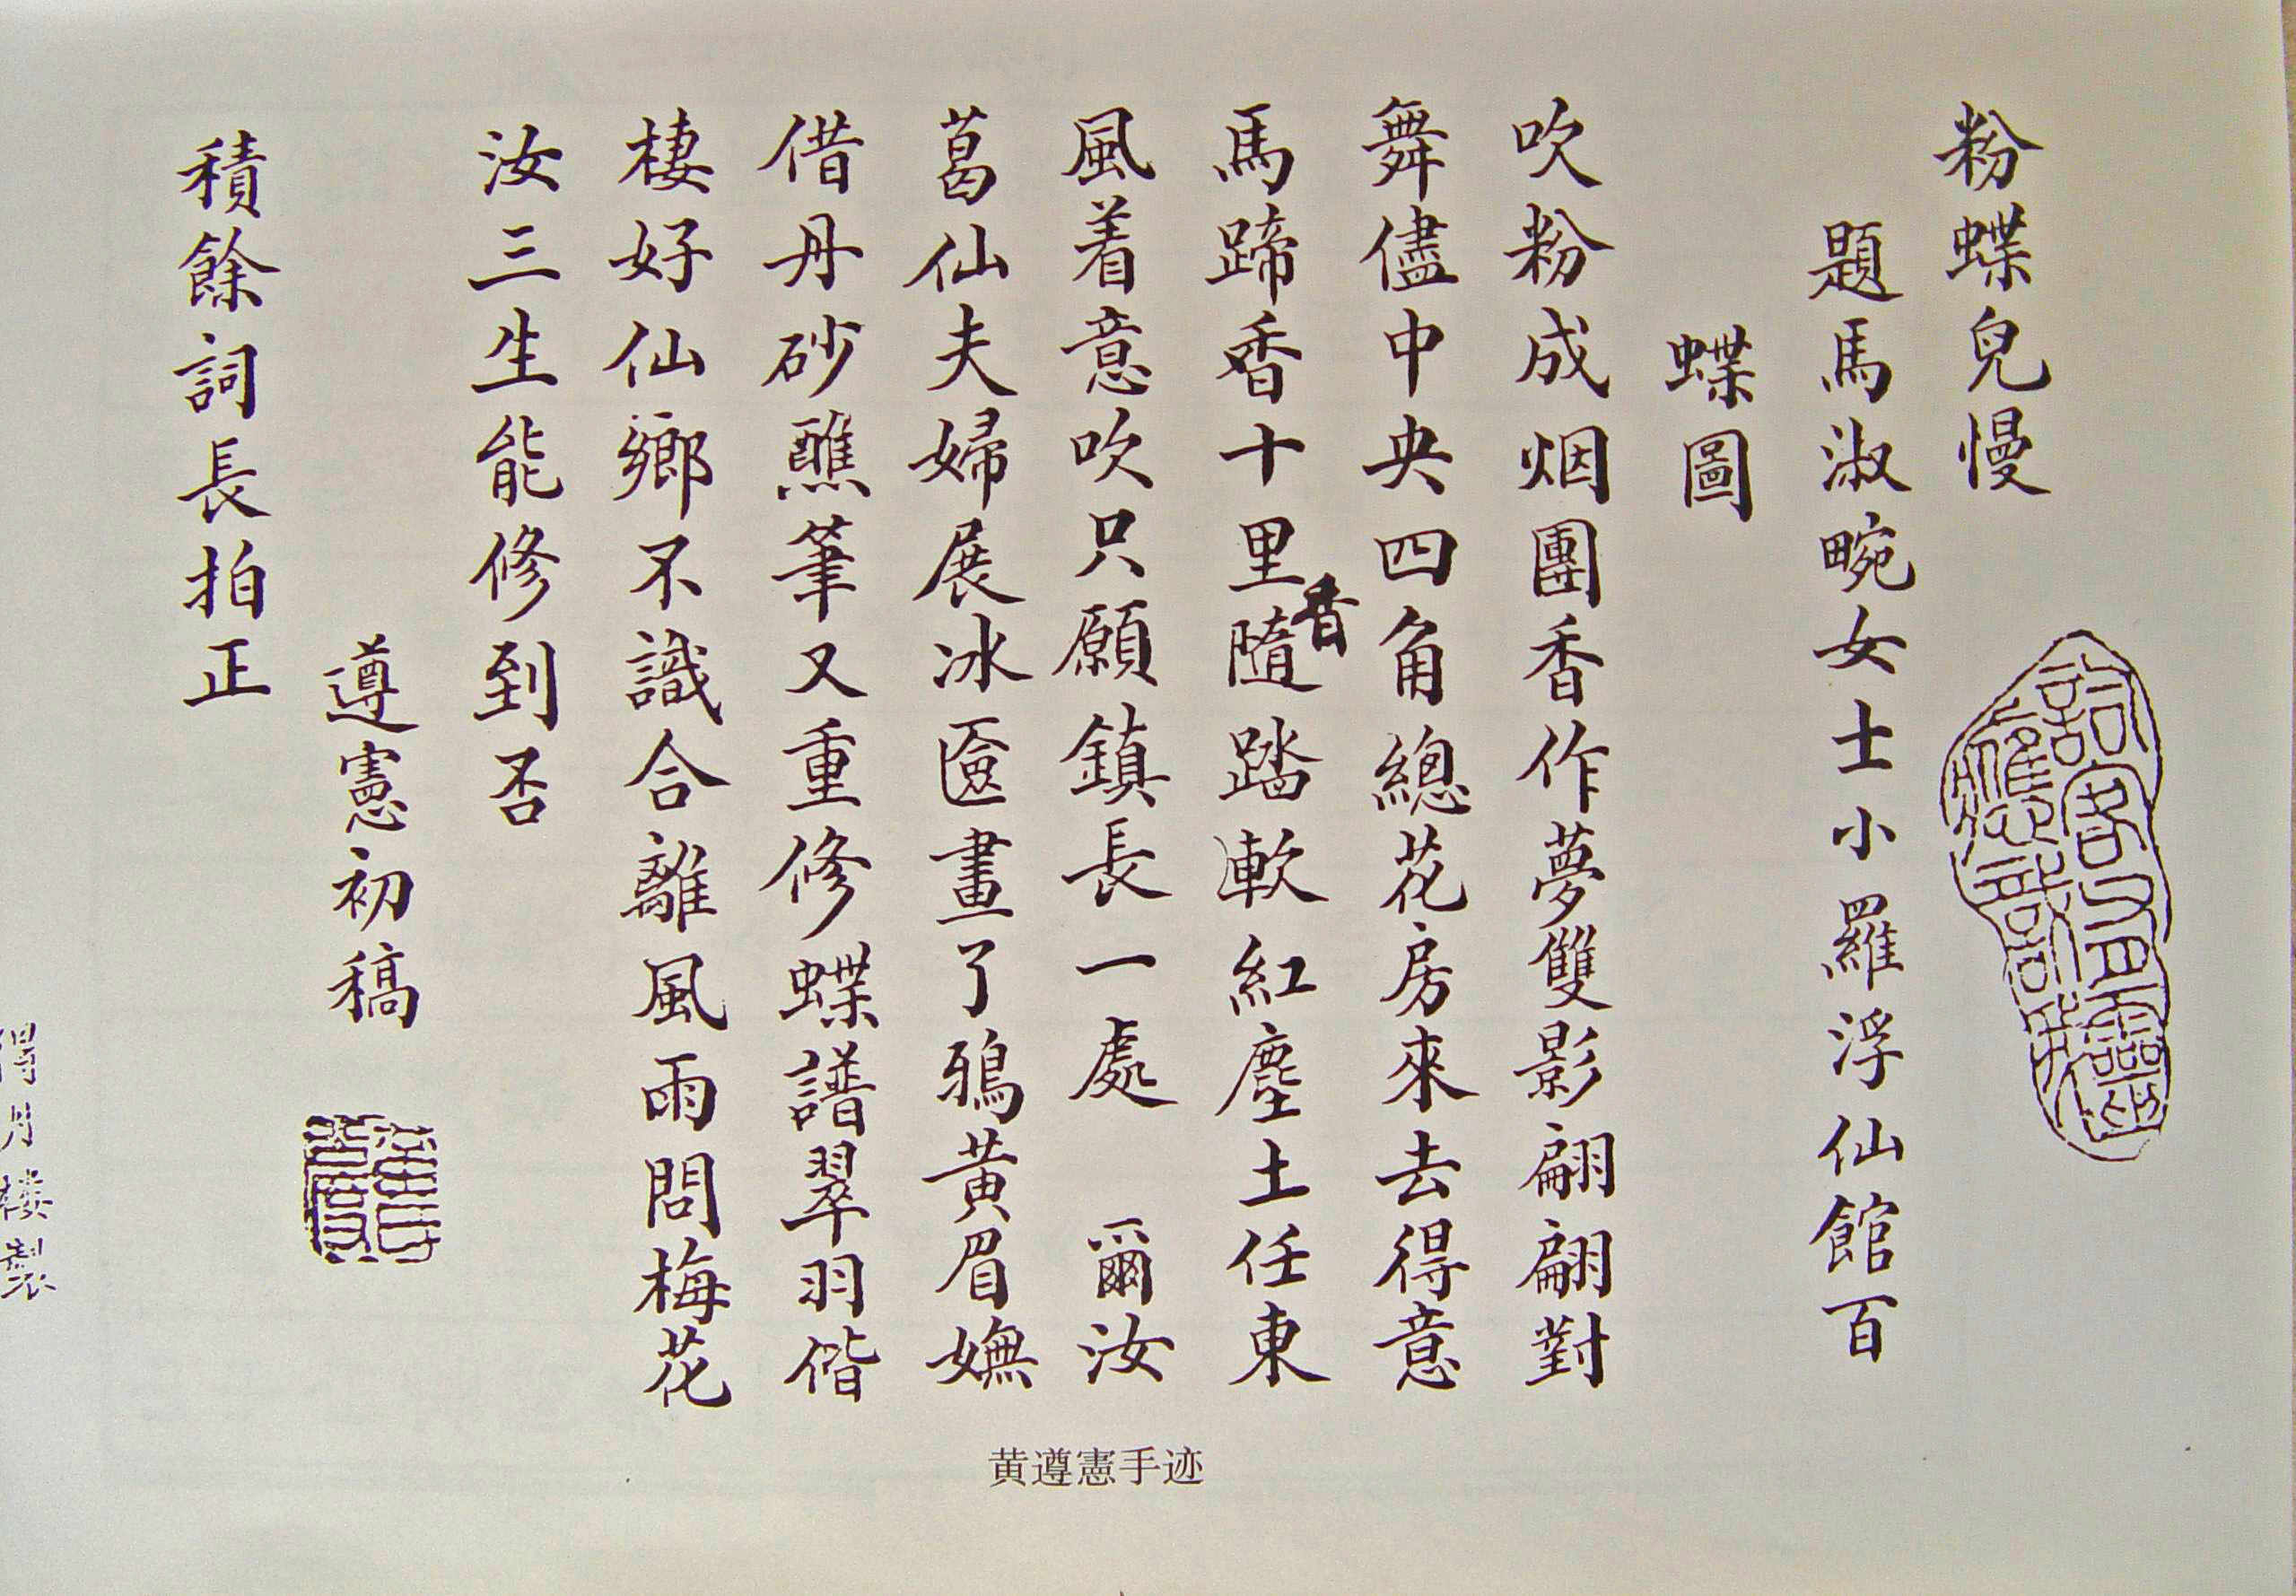 粉蝶兒慢
題馬淑畹女士小羅浮仙館百
蝶圖
吹粉成烟團香作夢雙影翩翩對
舞儘中央四角總花房來去得意
馬蹄香十里隨香踏軟紅塵土任東
風着意吹只願鎮長一處 爾汝
葛仙夫婦展冰匳畫了鴉黃眉嫵
借丹砂蘸筆又重修蝶譜翠羽偕
棲好仙鄉不識合離風雨問梅花
汝三生能修到否
遵憲初稿
積餘詞長拍正
得月樓製
黄遵憲手迹